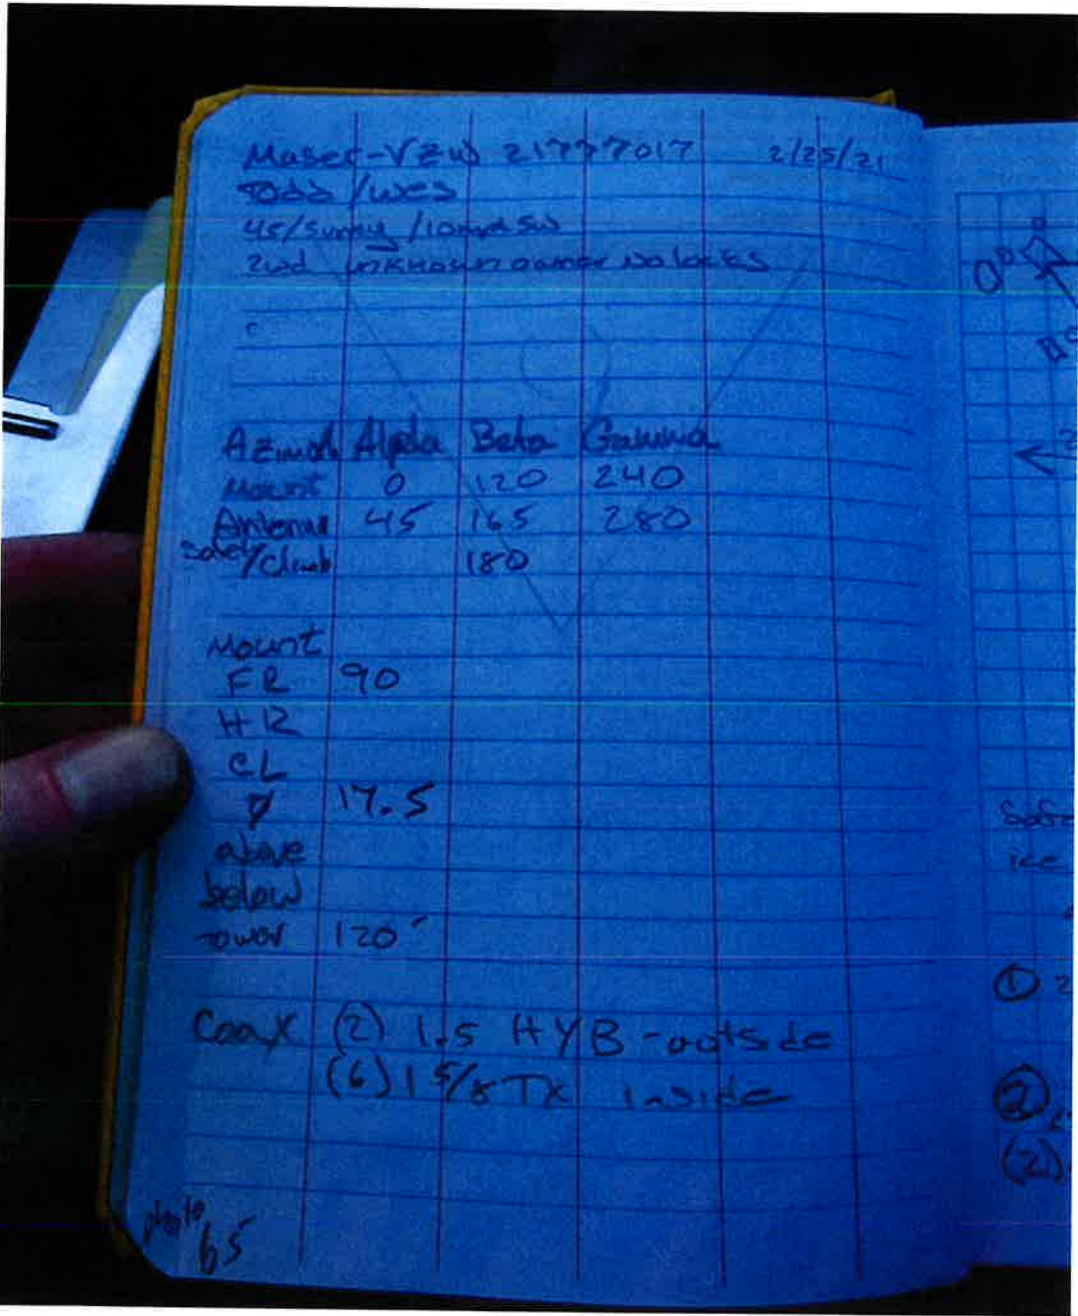 Maser-VZW 21777017 2/25/21
Todd/Wes
45/Sunny/10mph SW
2nd unknown owner no locks
Azimuth Alpha Beta Gamma
Mount 0 120 240
Antenna 45 165 280
Safety/Climb 180
Mount
FR 90
HR
CL
Ø 17.5
above
below
tower 120'
Coax (2) 1.5 HYB - outside
(6) 1 5/8 TX inside
photo
65
Safe
ice
① 2
②
(2)